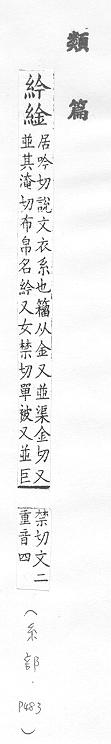 類篇
紟䘳
居吟切說文衣系也籀从金又並渠金切又
並其淹切布帛名紟又女禁切單被又並巨
禁切文二
重音四
(糸部.
P483)